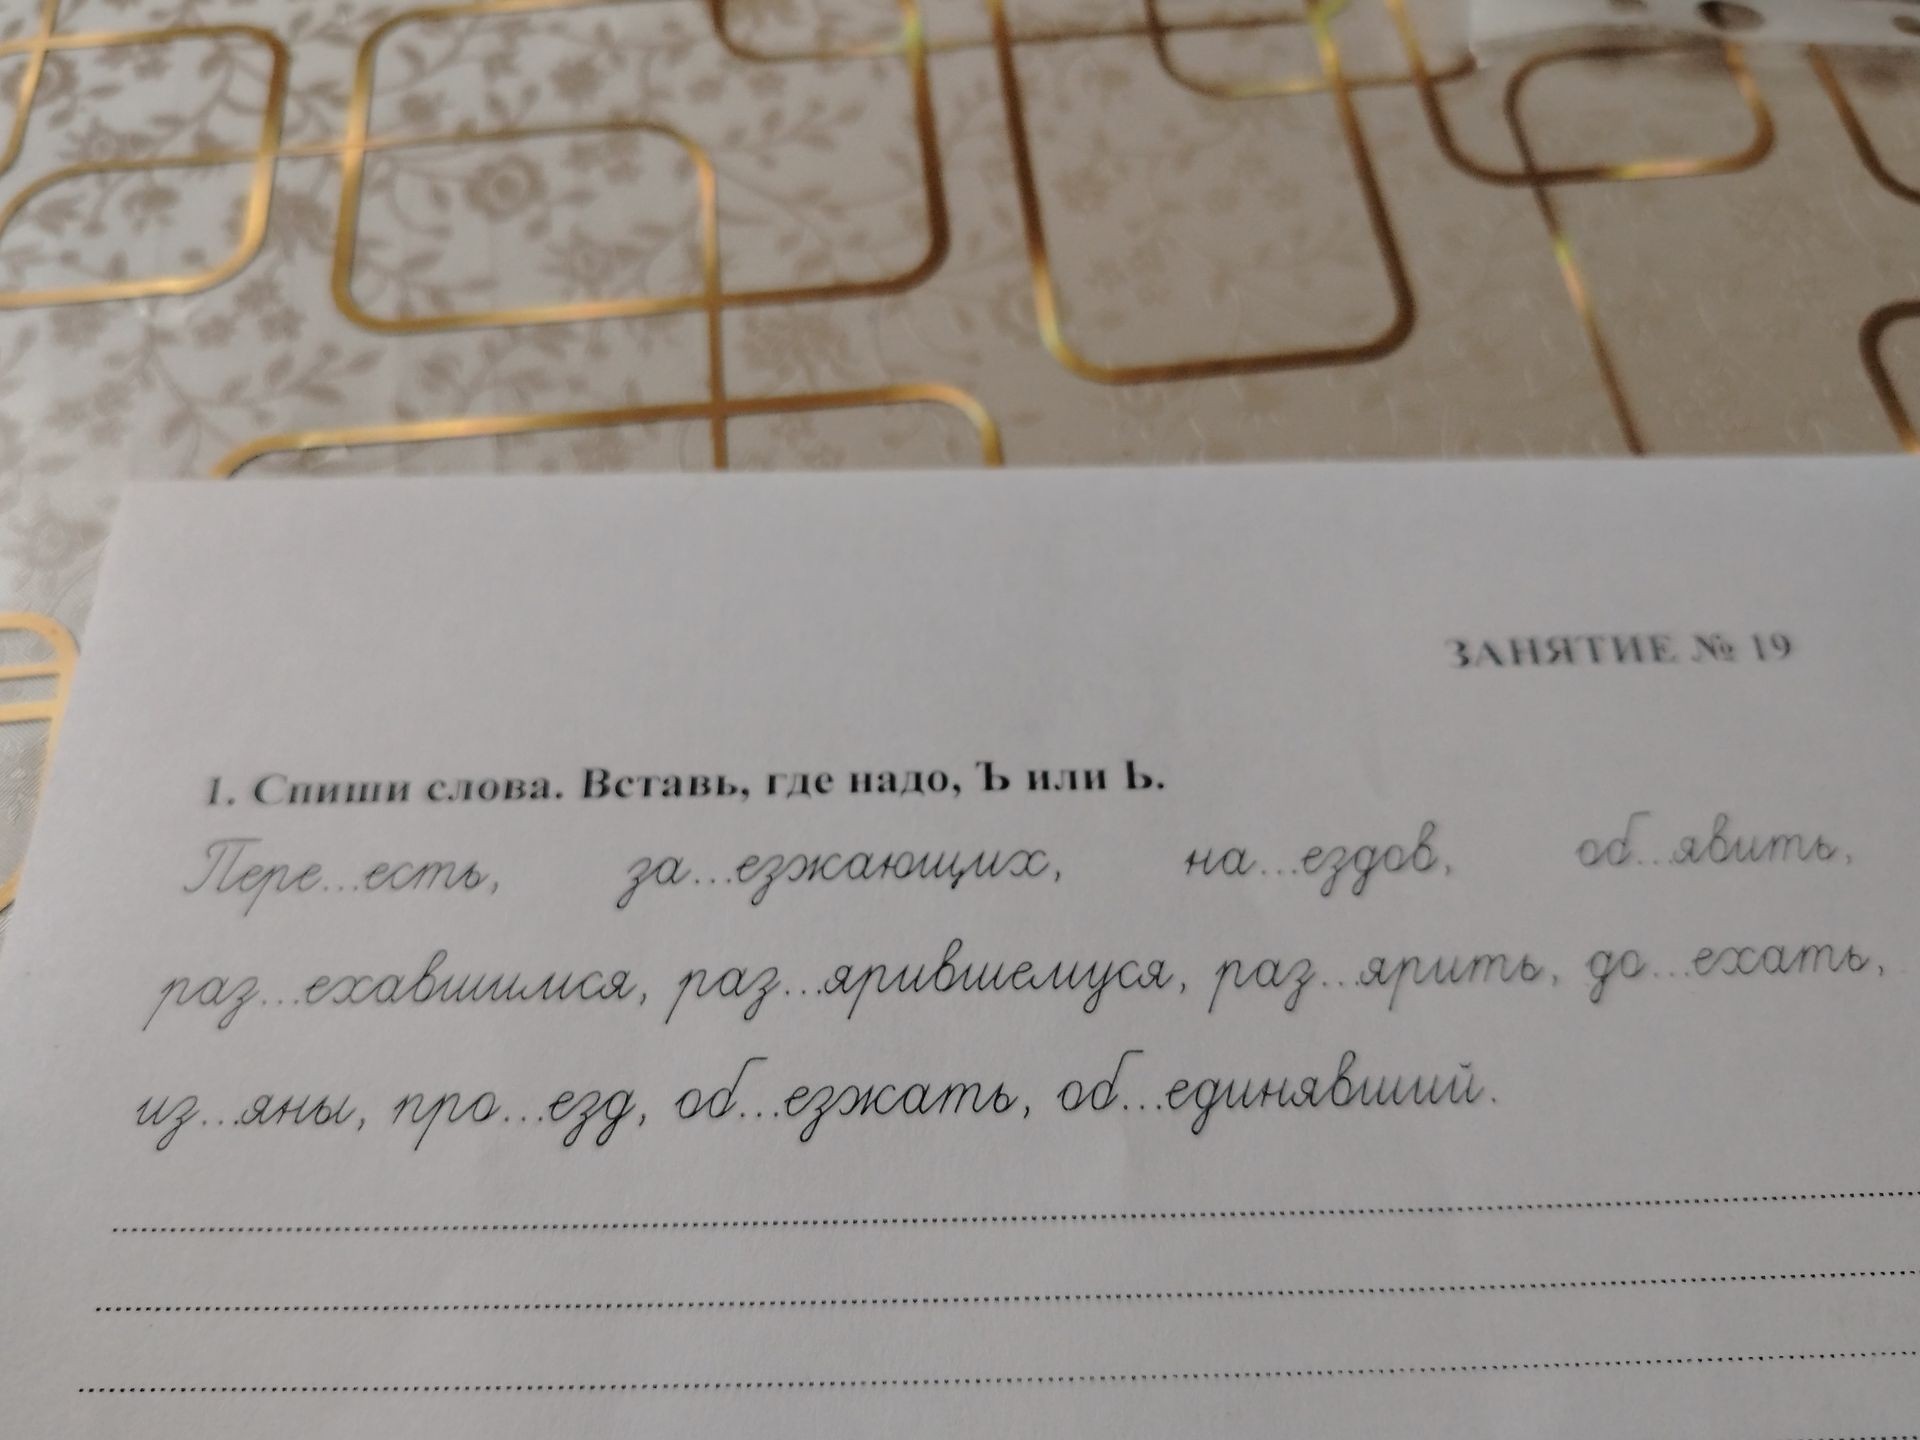 ЗАНЯТИЕ № 19
1. Спиши слова. Вставь, где надо, Ъ или Ь.
Пере...есть, за...езжающих, на...ездов, об...явить,
раз...ехавшимся, раз...ярившемуся, раз...ярить, до...ехать,
из...яны, про...езд, об...езжать, об...единявший.